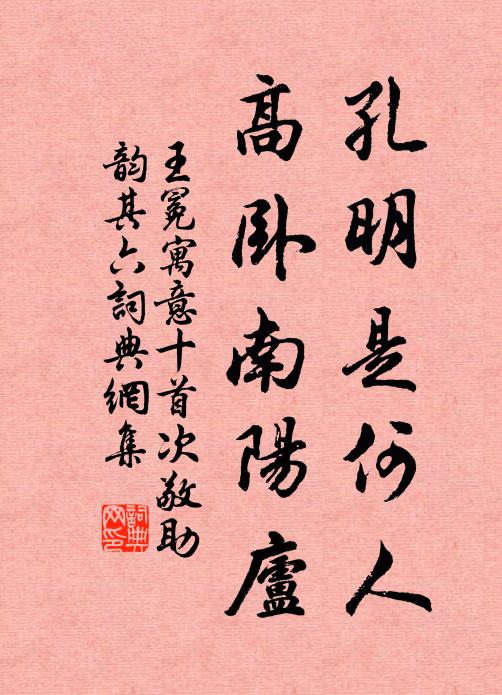 孔明是何人
高卧南陽廬
王冕寓意十首次敬助
韵其六詞典網集
詞典网印